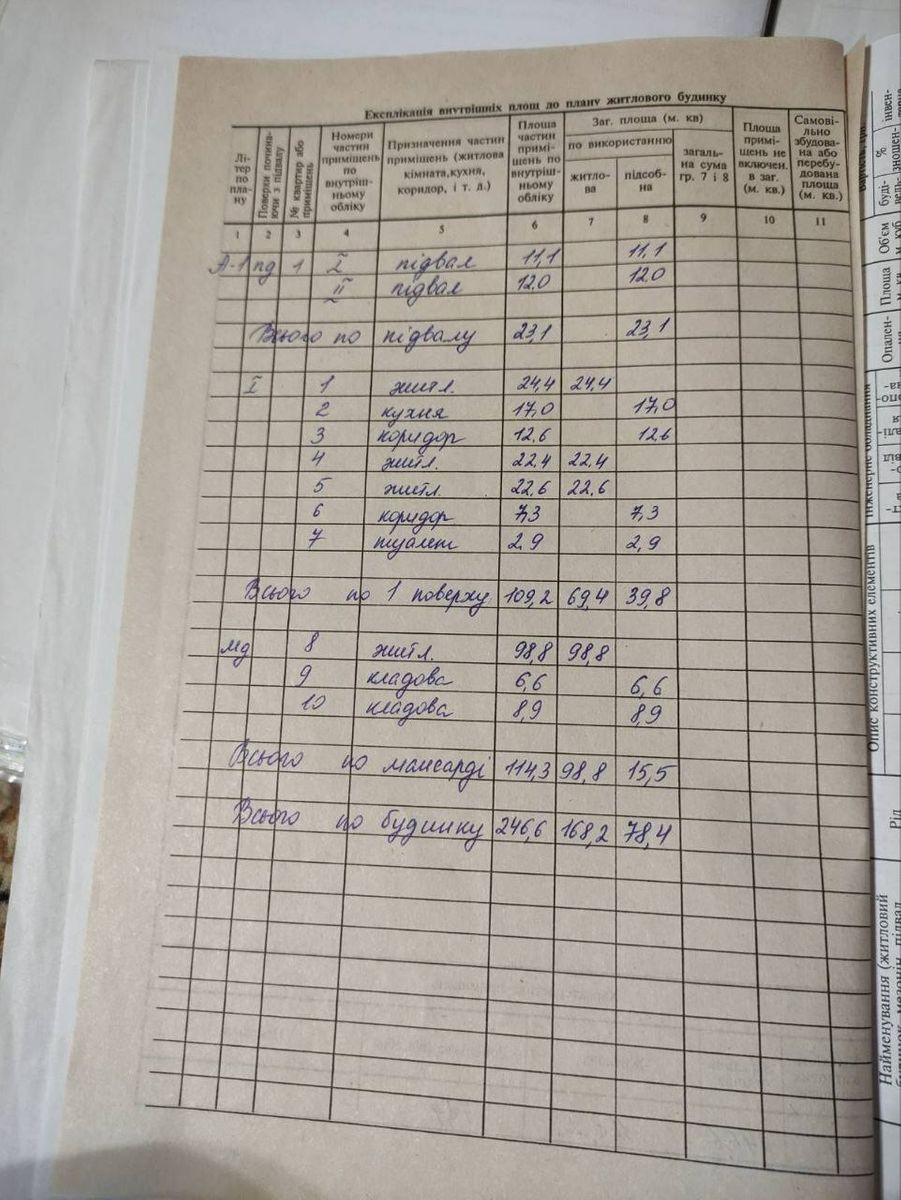 Експлікація внутрішніх площ до плану житлового будинку
Лі-
тер
по
пла-
ну
Поверхи почина-
ючи з підвалу
№ квартир або
приміщень
Номери
частин
приміщень
по
внутріш-
ньому
обліку
Призначення частин
приміщень (житлова
кімната,кухня,
коридор, і т. д.)
Площа
частин
примі-
щень по
внутріш-
ньому
обліку
Заг. площа (м. кв)
по використанню
житло-
ва
підсоб-
на
загаль-
на сума
гр. 7 і 8
Площа
примі-
щень не
включен.
в заг.
(м. кв.)
Самові-
льно
збудова-
на або
перебу-
дована
площа
(м. кв.)
1 2 3 4 5 6 7 8 9 10 11
А-1 пд 1 I підвал 11,1 11,1
II підвал 12,0 12,0
Всього по підвалу 23,1 23,1
I 1 житл. 24,4 24,4
2 кухня 17,0 17,0
3 коридор 12,6 12,6
4 житл. 22,4 22,4
5 житл. 22,6 22,6
6 коридор 7,3 7,3
7 туалет 2,9 2,9
Всього по 1 поверху 109,2 69,4 39,8
мд 8 житл. 98,8 98,8
9 кладова 6,6 6,6
10 кладова 8,9 8,9
Всього по мансарді 114,3 98,8 15,5
Всього по будинку 246,6 168,2 78,4
інвен-
%
зношен-
буді-
вель-
Об'єм
м. куб
Площа
Опален-
Інженерне обладнання
Опис конструктивних елементів
Рід
Найменування (житловий
будинок, мезонін, підвал